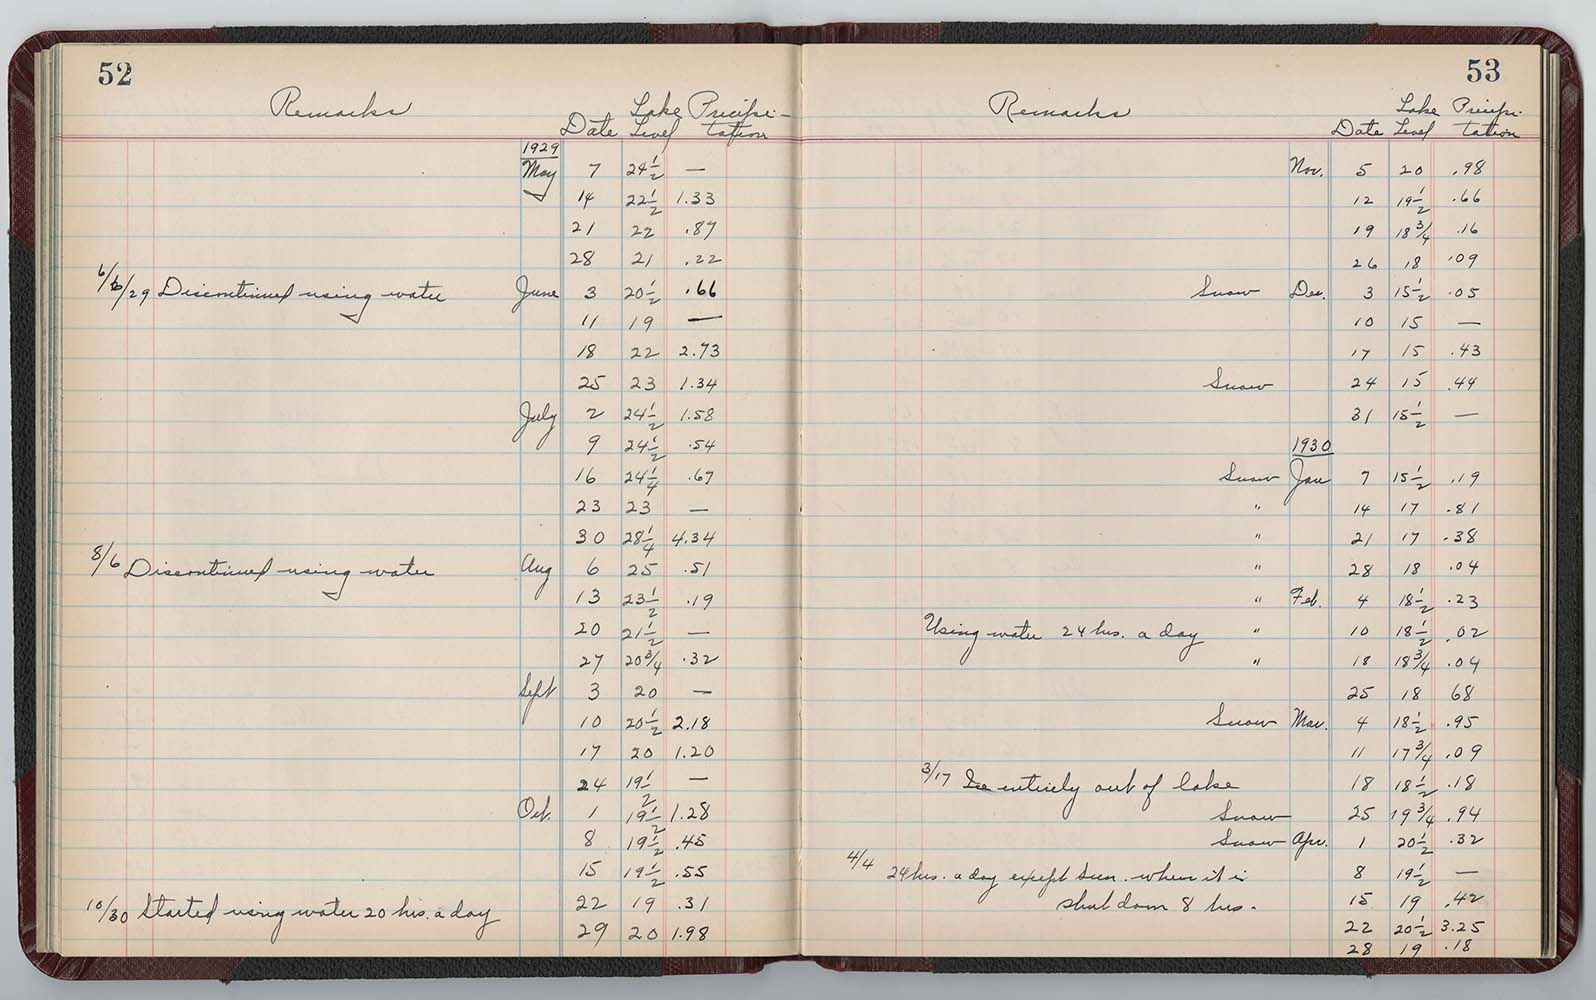 52
Remarks Date Lake Level Precipi-tation
1929
May 7 24 1/2 —
14 22 1/2 1.33
21 22 .87
28 21 .22
6/6/29 Discontinued using water June 3 20 1/2 .66
11 19 —
18 22 2.73
25 23 1.34
July 2 24 1/2 1.58
9 24 1/2 .54
16 24 1/4 .67
23 23 —
30 28 1/4 4.34
8/6 Discontinued using water Aug 6 25 .51
13 23 1/2 .19
20 21 1/2 —
27 20 3/4 .32
Sept 3 20 —
10 20 1/2 2.18
17 20 1.20
24 19 1/2 —
Oct. 1 19 1/2 1.28
8 19 1/2 .45
15 19 1/2 .55
22 19 .31
10/30 Started using water 20 hrs. a day 29 20 1.98
53
Remarks Date Lake Level Precipi-tation
Nov. 5 20 .98
12 19 1/2 .66
19 18 3/4 .16
26 18 .09
Snow Dec. 3 15 1/2 .05
10 15 —
17 15 .43
Snow 24 15 .44
31 15 1/2 —
1930
Snow Jan 7 15 1/2 .19
" 14 17 .81
" 21 17 .38
" 28 18 .04
" Feb. 4 18 1/2 .23
Using water 24 hrs. a day " 10 18 1/2 .02
" 18 18 3/4 .04
25 18 68
Snow Mar. 4 18 1/2 .95
11 17 3/4 .09
3/17 Ice entirely out of lake 18 18 1/2 .18
Snow 25 19 3/4 .94
Snow Apr. 1 20 1/2 .32
4/4 24 hrs. a day except Sun. when it is 8 19 1/2 —
shut down 8 hrs. 15 19 .42
22 20 1/2 3.25
28 19 .18